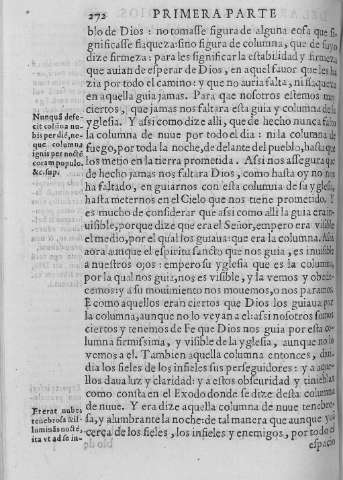 272 PRIMERA PARTE
blo de Dios : no tomasse figura de alguna cosa que si-
gnificasse flaqueza: sino figura de columna, que de suyo
dize firmeza: para les significar la estabilidad y firmeza
que auian de esperar de Dios, en aquel fauor que les ha
zia por todo el camino: y que no auria falta, ni flaqueza
en aquella guia jamas. Para que nosotros estemos muy
ciertos, que jamas nos faltara esta guia y columna de la
yglesia. Y assi como dize alli, que de hecho nunca falto
la columna de nuue por todo el dia : ni la columna de
fuego, por toda la noche, de delante del pueblo, hasta que
los metio en la tierra prometida. Assi nos assegura que
de hecho jamas nos faltara Dios, como hasta oy no nos
ha faltado, en guiarnos con esta columna de su yglesia,
hasta meternos en el Cielo que nos tiene prometido. Y
es mucho de considerar que assi como alli la guia era in-
uisible, porque dize que era el Señor, empero era visible
el medio, por el qual los guiaua: que era la columna. Assi
aora aunque el espiritu sancto que nos guia, es inuisible
a nuestros ojos : empero su yglesia que es la columna,
por la qual nos guia, nos es visible, y la vemos y obede-
cemos: y a su mouimiento nos mouemos, o nos paramos.
E como aquellos eran ciertos que Dios los guiaua por
la columna, aunque no lo veyan a el: assi nosotros somos
ciertos y tenemos de Fe que Dios nos guia por esta co-
lumna firmissima, y visible de la yglesia, aunque no lo
vemos a el. Tambien aquella columna entonces, diui-
dia los fieles de los infieles sus perseguidores : y a aque-
llos daua luz y claridad: y a estos obscuridad y tinieblas
como consta en el Exodo donde se dize desta columna
de nuue. Y era dize aquella columna de nuue tenebro-
sa, y alumbrante la noche: de tal manera que aunque yua
cerca de los fieles, los infieles y enemigos, por todo el
espacio
Nunquã defe-
cit colũna nu-
bis per diẽ, ne-
que columna
ignis per noctẽ
coram populo.
&c. sup.
Et erat nubes
tenebrosa & il-
luminãs noctẽ,
ita vt ad se in-